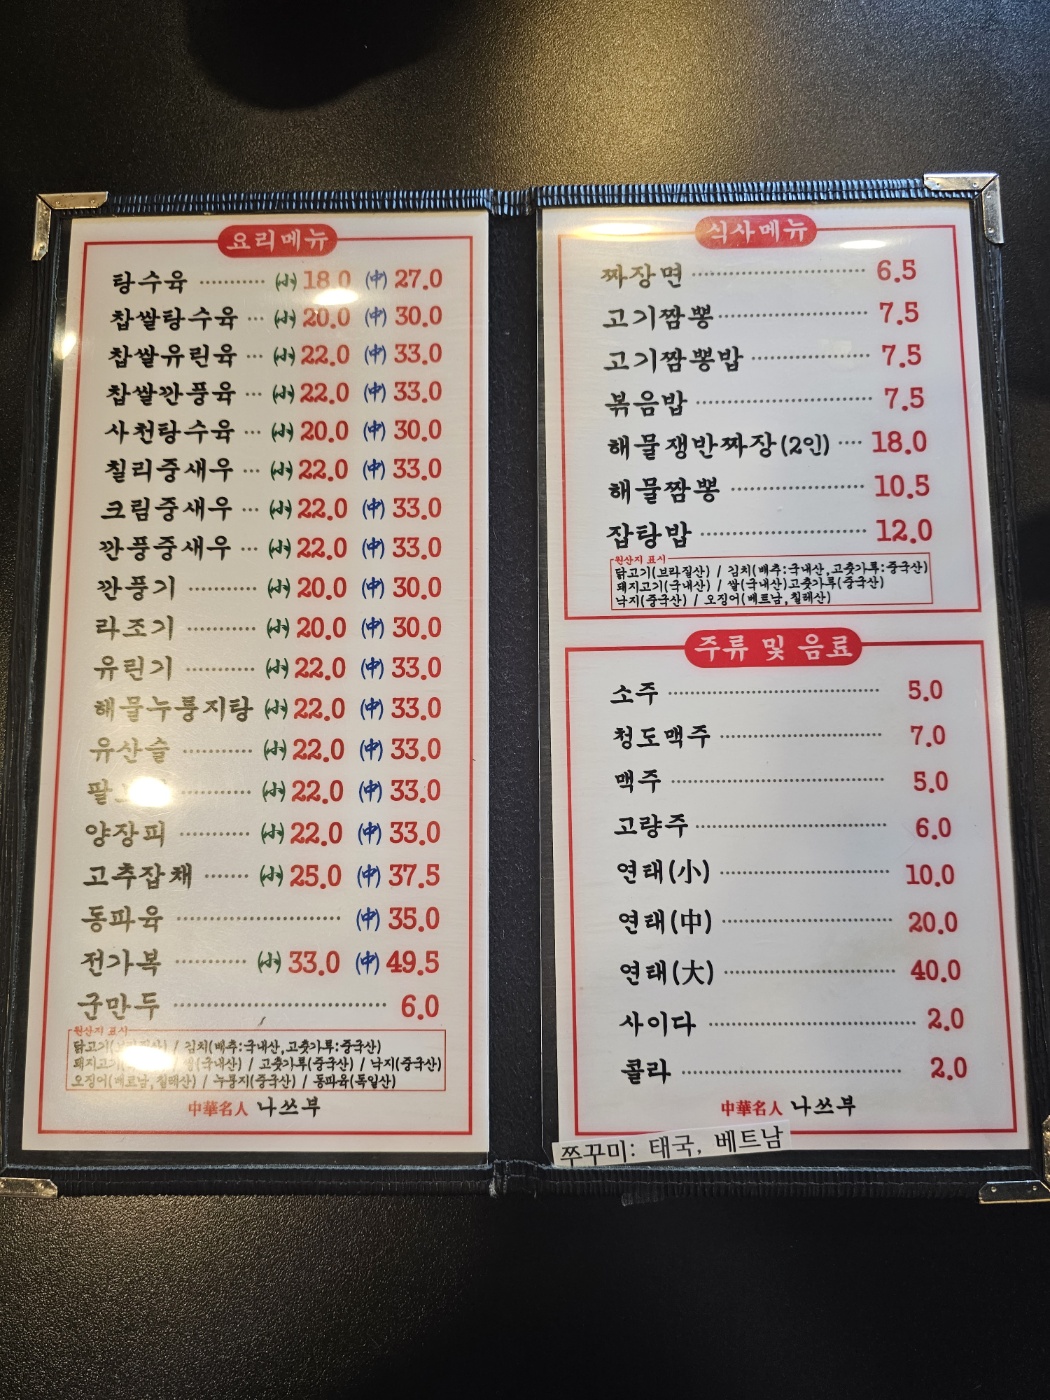 요리메뉴
탕수육 ··········· (小) 18.0 (中) 27.0
찹쌀탕수육 ··· (小) 20.0 (中) 30.0
찹쌀유린육 ··· (小) 22.0 (中) 33.0
찹쌀깐풍육 ··· (小) 22.0 (中) 33.0
사천탕수육 ··· (小) 20.0 (中) 30.0
칠리중새우 ··· (小) 22.0 (中) 33.0
크림중새우 ··· (小) 22.0 (中) 33.0
깐풍중새우 ··· (小) 22.0 (中) 33.0
깐풍기 ············ (小) 20.0 (中) 30.0
라조기 ············ (小) 20.0 (中) 30.0
유린기 ············ (小) 22.0 (中) 33.0
해물누룽지탕 (小) 22.0 (中) 33.0
유산슬 ············ (小) 22.0 (中) 33.0
팔 (小) 22.0 (中) 33.0
양장피 ············ (小) 22.0 (中) 33.0
고추잡채 ······· (小) 25.0 (中) 37.5
동파육 ···························· (中) 35.0
전가복 ············ (小) 33.0 (中) 49.5
군만두 ···································· 6.0
원산지 표시
닭고기( / 김치(배추:국내산,고춧가루:중국산)
돼지고기( (국내산) / 고춧가루(중국산) / 낙지(중국산)
오징어(베트남,칠레산) / 누룽지(중국산) / 동파육(독일산)
中華名人 나쓰부
식사메뉴
짜장면 ····························· 6.5
고기짬뽕 ························· 7.5
고기짬뽕밥 ···················· 7.5
볶음밥 ····························· 7.5
해물쟁반짜장(2인) ···· 18.0
해물짬뽕 ······················ 10.5
잡탕밥 ·························· 12.0
원산지 표시
닭고기(브라질산) / 김치(배추:국내산,고춧가루:중국산)
돼지고기(국내산) / 쌀(국내산)고춧가루(중국산)
낙지(중국산) / 오징어(베트남,칠레산)
주류 및 음료
소주 ··································· 5.0
청도맥주 ··························· 7.0
맥주 ··································· 5.0
고량주 ······························· 6.0
연태(小) ··························· 10.0
연태(中) ··························· 20.0
연태(大) ··························· 40.0
사이다 ······························· 2.0
콜라 ··································· 2.0
中華名人 나쓰부
쭈꾸미: 태국, 베트남